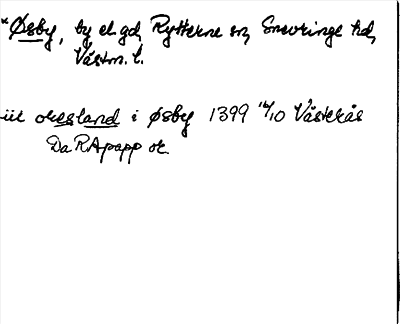 *Øsby, by el. gd, Rytterne sn, Snevringe hd,
Västm. l.
iii øresland i Øsby 1399 16/10 Västerås
Da RApapp or.